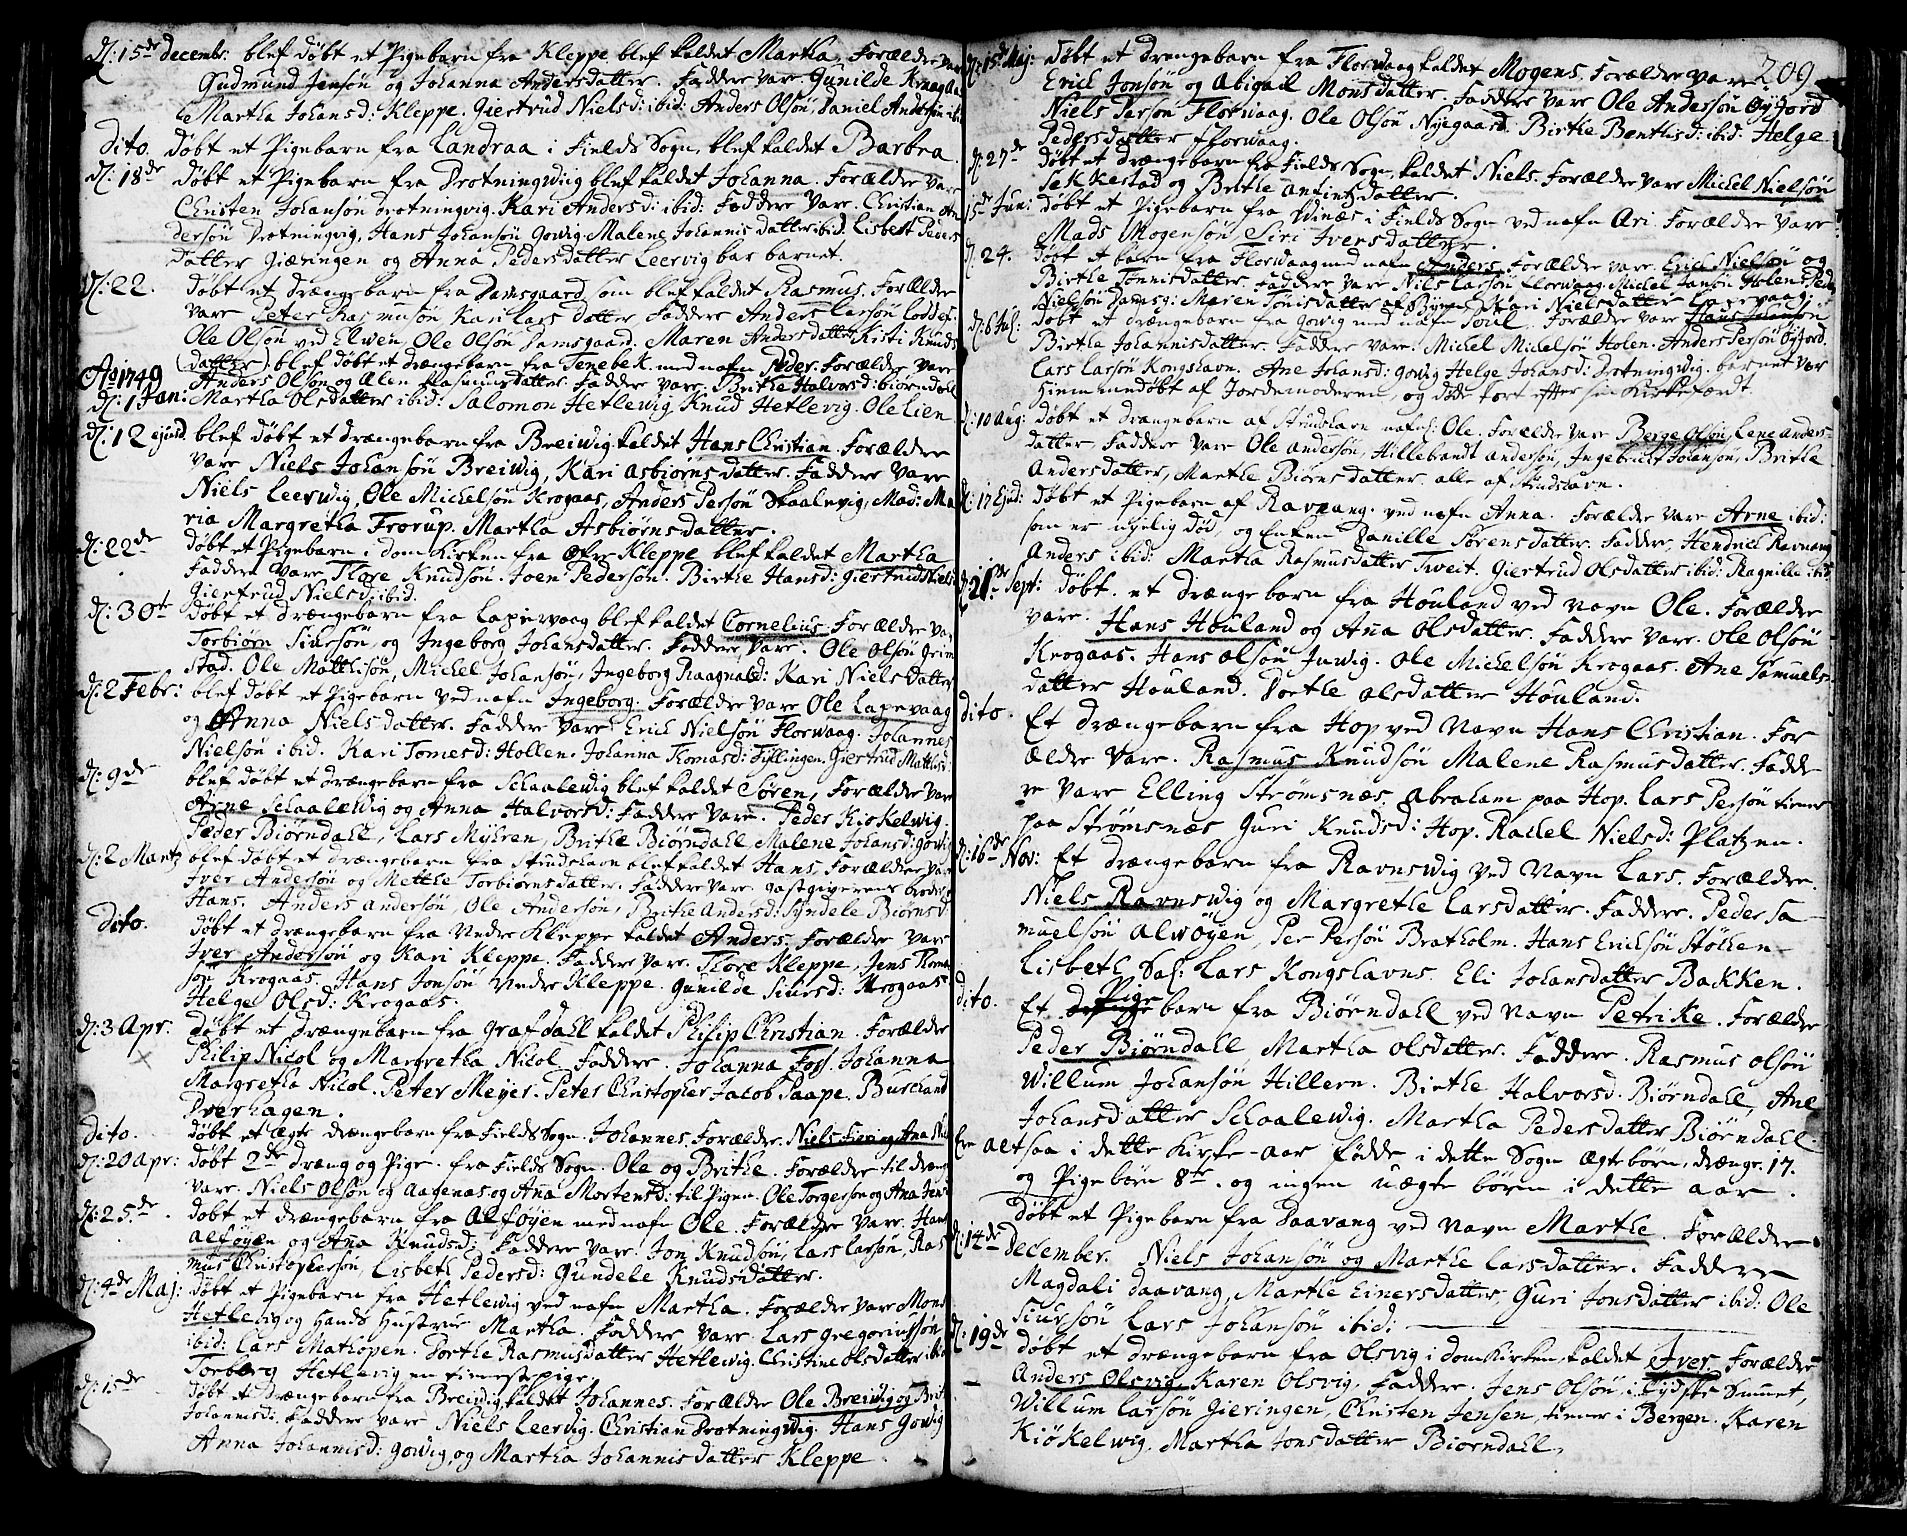 d: 15de decembr: blef døbt et Pigebarn fra Kleppe blef kaldet Martha, Forældre vare
Gudmund Jensøn og Johanna Andersdatter. Faddere vare Gunilde
Martha Johansd: Kleppe. Giertrud Nielsd: ibid: Anders Olsøn, Daniel Andersøn ibid
Dito. døbt et Pigebarn fra Landraa i Fields Sogn, blef kaldet Barbra.
d: 18de døbt et Pigebarn fra Drotningwiig blef kaldet Johanna. Forældre vare
Christen Johansøn Drotningvig. Kari Andersd: ibid: Faddere vare. Christian An
dersøn Drotningvig, Hans Johansøn Gowig. Malene Johannis datter ibid. Lisbeth Peders
datter Gieringen og Anna Pedersdatter Leervig bar barnet.
d: 22. døbt et drængebarn fra Damsgaard som blef kaldet Rasmus. Forældre
vare Peter Rasmusøn Kari Lars datter Faddere Anders Larsøn
Ole Olsøn ved Elwen, Ole Olsøn Damsgaard. Maren Andersdatter Kisti Knuds
datter
Ao 1749 blef døbt et drængebarn fra Tenebek med nafn Peder. Forældre vare
Anders Olsøn og Ælen Rasmusdatter. Faddere vare. Brithe Halvorsd: biørndal
d: 1 Jan: Martha Olsdatter ibid: Salomon Hetlewig Knud Hetlevig. Ole Lien
d: 12 ejusd. blef døbt et drængebarn fra Breiwig kaldet Hans Christian. Forældre
vare Niels Johansøn Breiwig, Kari Asbiorns datter. Faddere vare
Niels Leerwig Ole Michelsøn Krogaas, Anders Persøn Skaalevig, Mad: Ma
ria Margretha Frorup. Martha Asbiørnsdatter.
d: 22de døbt et Pigebarn i dom Kirken fra øfre Kleppe blef kaldet Martha
Faddere vare Thore Knudsøn. Joen Pedersøn. Birthe Hansd: Giertrud Niels
Giertrud Nielsd: ibid:
d: 30te døbt et drængebarn fra Lapervaag blef kaldet Cornelius. Forældre var
Torbiørn Siursøn, og Ingeborg Johansdatter. Faddere vare. Ole Olsøn Grim
stad. Ole Matthisøn, Michel Johansøn, Ingeborg Raagnalsd: Kari Niels datter
d: 2 Febr: blef døbt et Pigebarn ved nafn Ingeborg. Forældre vare Ole Lapevaag
og Anna Nielsdatter. Faddere vare Erich Nielsøn Florwaag. Johannes
Nielsøn ibid. Kari Tomesd: Hollen. Johanna Thomasd: Fyllingen. Giertrud Matthisd:
d: 9de blef døbt et drængebarn fra Schaalewig blef kaldet Søren, Forældre vare
Arne Schaalewig og Anna Halvorsd: Faddere vare. Peder Kiøkelwig.
Peder Biørndahl, Lars Myhren, Brithe Biørndahl, Malene Johansd: gowig
d: 2 Martz blef døbt et drængebarn fra Strudshavn blef kaldet Hans, Forældre var
Iver Andersøn og Mettle Torbiørnsdatter. Faddere vare. gastgiverens
Hans. Anders andersøn, Ole Andersøn, Brithe Andersd: Syndele Biørnsd:
Dito. døbt et drængebarn fra Undre Kleppe kaldet Anders. Forældre vare
Iver Andersøn og Kari Kleppe. Faddere vare. Thore Kleppe, Jens Thom
søn Krogaas. Hans Jonsøn Undre Kleppe. Gunilde Siursd: Krogaas
Helge Olsd: Krogaas.
d: 3 Apr. døbt et drængebarn fra Grafdahl kaldet Philip Christian. Forældre
Philip Nicol og Margretha Nicol. Faddere. Johanna Foss. Johanna
Margretha Nicol. Peter Meyer. Peter Christopher Jacob Paape. Burchard
Overhagen.
Dito. døbt et ægte drængebarn fra Fields Sogn. Johannes. Forældre. Niels
d: 20 Apr: døbt 2de dræng og Pige. fra Fields Sogn. Ole og Brithe. Forældre til dreng
vare. Niels Olsøn og Aagenæs og Ana Mortensd: til Pigen. Ole Torgersøn og Ana Jens
d: 25.de døbt et drængebarn fra Alføyen med nafn Ole. Forældre vare. Hans
alføyen og Ana Knudsd; Faddere vare. Jon Knudsøn, Lars Larsøn, Ras
mus Christophersøn, Lisbeth Pedersd: Gundele Knudsdatter.
d: 4de Maj: døbt et Pigebarn fra Hetlewig ved nafn Martha. Forældre vare Mons
Hetlevig og Hands Hustrue Martha. Faddere vare. Lars Gregoriussøn
ibid: Lars Mathopen. Dorthe Rasmusdatter Hetlewig. Christine Olsdatter ibid
Torberg Hetlevig en tienestepige.
d: 15de døbt et drængebarn fra Breiwig kaldet Johannes. Forældre Ole Breiwig og Brite
Johannisd: Faddere vare Niels Leervig. Christian Drotningwig. Hans Gowig
Anna Johannisd: gowig, og Martha Johannis datter Kleppe.
209
d: 15de Maj: døbt et drængebarn fra Florwaag kaldet Mogens. Forældre vare
Erich Jonsøn og Abigail Monsdatter. Faddere vare Ole Andersøn Øyjord
Niels Persøn Florwaag. Ole Olsøn Nyegaard. Birthe Benthsd: ibid: Helge
Pedersdatter Florwaag.
d: 27de døbt et drængebarn fra Fields Sogn, kaldet Niels. Forældre vare Michel Nielsøn
Sekkestad og Brithe datter.
5te Jun: døbt et Pigebarn fra Winæs i Fields Sogn ved nafn Ari. Forældre vare
Mads Mogensøn Siri Iversdatter.
d: 24. døbt et barn fra Florwaag med nafn Anders. Forældre vare. Erich Nielsøn og
Birthe Tonnisdatter. Faddere vare Niels Larsøn Florwaag. Michel Jansøn Holen. Peder
Nielsøn Damsg: Maren Tonisdatter af Byen. Kari Nielsdatter
d: 6 Jul: døbt et drængebarn fra Gowig med nafn Poul. Forældre vare Hans Johansøn
Birthe Johannisdatter. Faddere vare. Michel Michelsøn Holen. Anders Persøn Øyjord.
Lars Larsøn Kongshavn. Ane Johansd: gowig Helge Johansd: Drotningwig. barnet var
hiemmedøbt af Jordemoderen, og døde kort efter sin Kirkefærdt.
d: 10 Aug: døbt et drængebarn af Strudshavn nafnl: Ole. Forældre vare Berge Olsøn, Lene Anders-
datter. Faddere vare Ole Andersøn, Hillebrandt Andersøn, Ingebricht Johansøn, Brithe
Andersdatter, Marthe Biørnsdatter. alle af Strudshavn.
d: 17 Ejusd: døbt et Pigebarn af Ravnang. ved nafn Anna. Forældre vare Arne ibid:
som er nyelig død, og Enken Pernille Sørensdatter. Faddere, Hendrich Ravnang
Anders ibid: Martha Rasmusdatter Tveit. Giertrud Olsdatter ibid: Ragnille ibid
d: 21de Sept: døbt. et drængebarn fra Houland ved navn Ole. Forældre
vare. Hans Houland og Ana Olsdatter. Faddere vare. Ole Olsøn
Krogaas. Hans Olsøn Juwig. Ole Michelsøn Krogaas. Ane Samuels-
datter Houland. Dorthe Olsdatter Houland.
dito. Et drængebarn fra Hop ved Navn Hans Christian. For
ældre vare. Rasmus Knudsøn Malene Rasmusdatter. Fadde
re vare Elling Strømsnæs. Abraham paa Hop. Lars Persøn tiener
paa Strømsnæs Guri Knudsd: Hop. Rachel Nielsd: Platzen.
d: 16de Nov: Et drængebarn fra Ravnswig ved Navn Lars. Forældre.
Niels Ravnswig og Margrethe Larsdatter. Faddere. Peder Sa-
muelsøn Alwøyen, Per Persøn Bratholm. Hans Erichsøn Støhen
Lisbeth Sal: Lars Kongshavns. Eli Johansdatter Bakken.
dito. Et Pige barn fra Biørndahl ved Navn Petrike. Forældre
Peder Biørndahl, Martha Olsdatter. Faddere. Rasmus Olsøn
Willum Johansøn Hillern. Birthe Halvorsd. Biørndahl, Ane
Johansdatter Schaalewig. Martha Pedersdatter Biørndahl.
Ere altsaa i dette Kirke-aar fødde i dette Sogn Ægte børn, drænge. 17.
og Pige børn 8te. og ingen uægte børn i dette aar.
døbt et Pigebarn fra Daavang ved Navn Marthe. Forældre
d: 14de december. Niels Johansøn og Marthe Larsdatter. Faddere
Magdali Daavang, Marthe Einersdatter, Guri Jonsdatter ibid: Ole
Siursøn Lars Johansøn ibid:
d: 19de døbt et drængebarn fra Olsvig i domKirken, kaldet Iver. Forældre
Anders Olsvig, Karen Olsvig. Faddere. Jens Olsøn, i
Willum Larsøn Gieringen, Christen Jensen, tiener i Bergen. Karen
Kiøkelwig. Martha Jonsdatter Biorndahl.